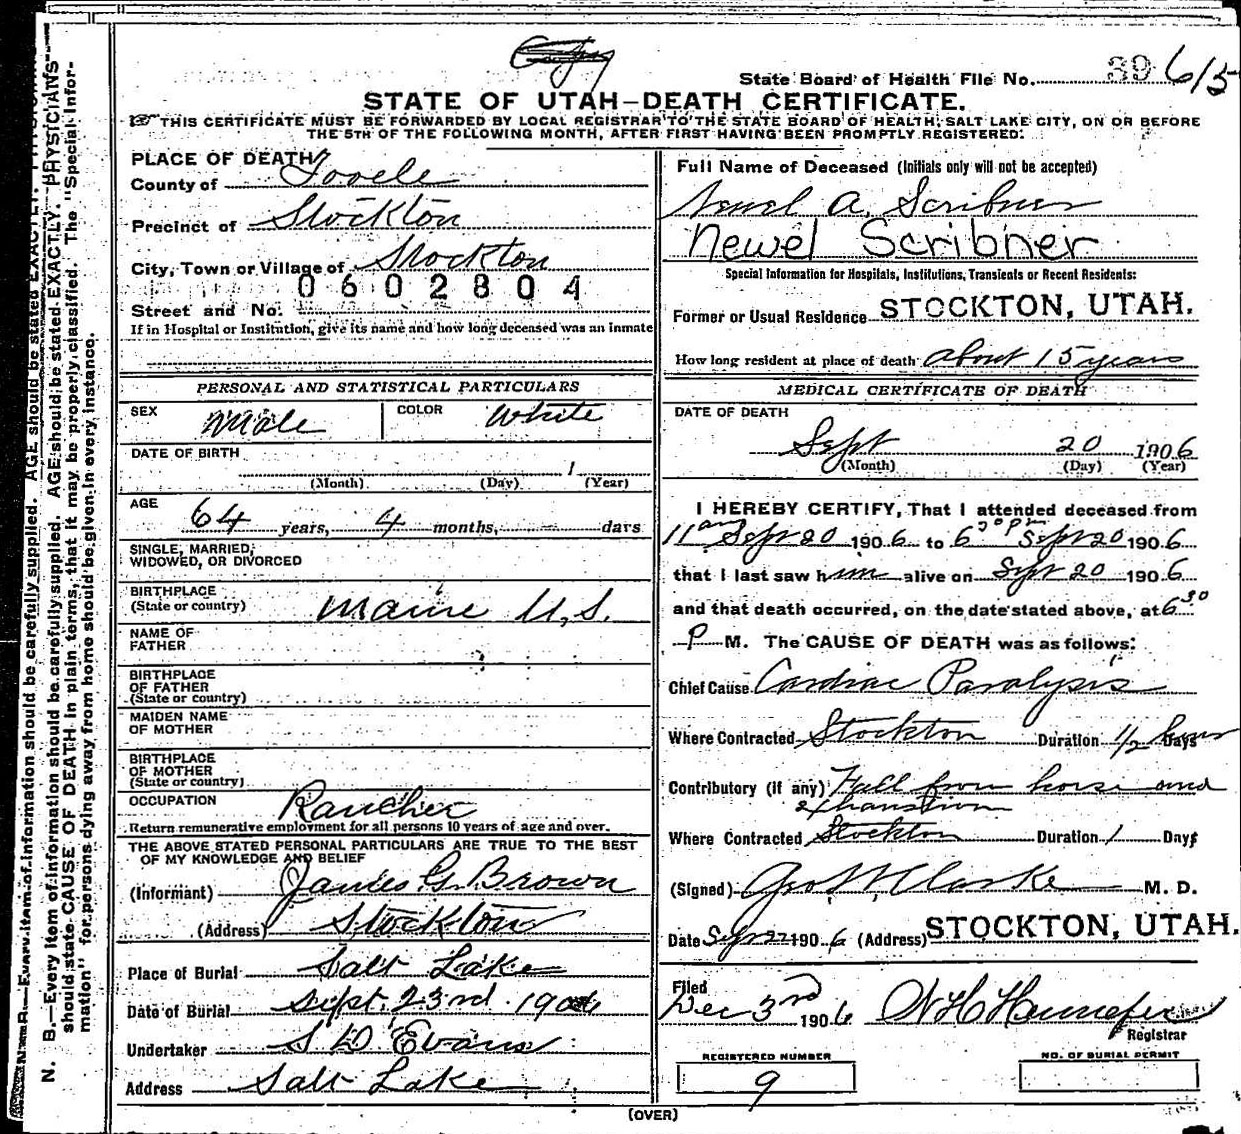 Copy
State Board of Health File No. 39 615
STATE OF UTAH—DEATH CERTIFICATE.
THIS CERTIFICATE MUST BE FORWARDED BY LOCAL REGISTRAR TO THE STATE BOARD OF HEALTH, SALT LAKE CITY, ON OR BEFORE
THE 5TH OF THE FOLLOWING MONTH, AFTER FIRST HAVING BEEN PROMPTLY REGISTERED.
PLACE OF DEATH
County of Tooele
Precinct of Stockton
City, Town or Village of Stockton
0602804
Street and No.
If in Hospital or Institution, give its name and how long deceased was an inmate
PERSONAL AND STATISTICAL PARTICULARS
SEX Male COLOR White
DATE OF BIRTH
1
(Month) (Day) (Year)
AGE
64 years, 4 months, — days
SINGLE, MARRIED,
WIDOWED, OR DIVORCED
BIRTHPLACE
(State or country) Maine U.S.
NAME OF
FATHER
BIRTHPLACE
OF FATHER
(State or country)
MAIDEN NAME
OF MOTHER
BIRTHPLACE
OF MOTHER
(State or country)
OCCUPATION Rancher
Return remunerative employment for all persons 10 years of age and over.
THE ABOVE STATED PERSONAL PARTICULARS ARE TRUE TO THE BEST
OF MY KNOWLEDGE AND BELIEF
(Informant) James G. Brown
(Address) Stockton
Place of Burial Salt Lake
Date of Burial Sept. 23rd. 1906
Undertaker S D Evans
Address Salt Lake
Full Name of Deceased (Initials only will not be accepted)
Newel A. Scribner
Newel Scribner
Special Information for Hospitals, Institutions, Transients or Recent Residents:
Former or Usual Residence STOCKTON, UTAH.
How long resident at place of death about 15 years
MEDICAL CERTIFICATE OF DEATH
DATE OF DEATH
Sept 20 1906
(Month) (Day) (Year)
I HEREBY CERTIFY, That I attended deceased from
11 am Sept 20 1906 to 6 30 pm Sept 20 1906
that I last saw him alive on Sept 20 1906
and that death occurred, on the date stated above, at 6 30
P M. The CAUSE OF DEATH was as follows:
Chief Cause Cardiac Paralysis
Where Contracted Stockton Duration 1/2 hour Days
Contributory (if any) Fall from horse and
exhaustion
Where Contracted Stockton Duration 1 Days
(Signed) Geo W Clarke M. D.
Date Sept 22 1906 (Address) STOCKTON, UTAH.
Filed
Dec 3rd 1906
Registrar
REGISTERED NUMBER
9
NO. OF BURIAL PERMIT
(OVER)
N. B.—Every item of information should be carefully supplied. AGE should be stated EXACTLY. PHYSICIANS
should state CAUSE OF DEATH in plain terms, that it may be properly classified. The "Special Infor-
mation" for persons dying away from home should be given in every instance.